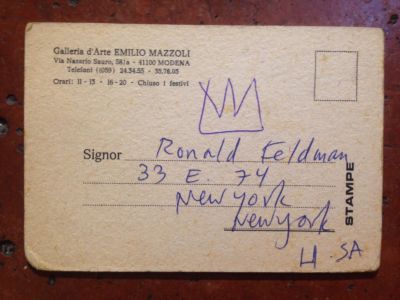 Galleria d'Arte EMILIO MAZZOLI
Via Nazario Sauro, 58/a - 41100 MODENA
Telefoni (059) 24.34.55 - 35.78.05
Orari: 11 - 13 - 16 - 20 - Chiuso i festivi
Signor Ronald Feldman
33 E. 74
New York
New York
U.SA
STAMPE